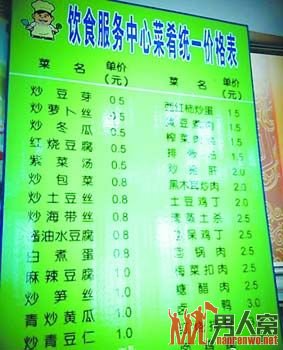 饮食服务中心菜肴统一价格表
菜 名 单价(元) 菜 名 单价(元)
炒豆芽 0.5 西红柿炒蛋 1.5
炒萝卜丝 0.5 1.5
炒冬瓜 0.5 榨菜 1.5
红烧豆腐 0.5 排 1.5
紫菜汤 0.5 炒 2.0
炒包菜 0.8 黑木耳炒肉 2.0
炒土豆丝 0.8 土豆鸡丁 2.0
炒海带丝 0.8 清蒸土杀 2.5
酱油水豆腐 0.8 保鸡丁 2.5
白煮蛋 0.8 锅肉 2.5
麻辣豆腐 1.0 梅菜扣肉 2.5
炒笋丝 1.0 糖醋肉 2.5
青炒黄瓜 1.0 鸭 3.0
青炒豆仁 1.0
男人窝
nanrenwo.net